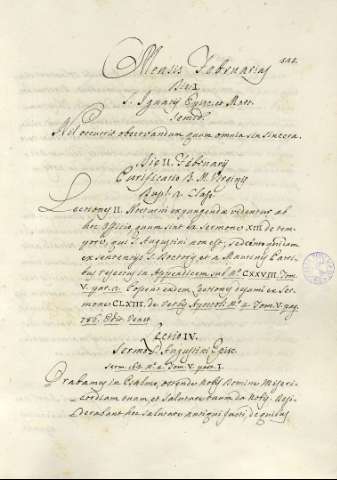 Mensis Februarius
Die I.
S. Ignatij Episc. et Mart.
Semid.
Nil occurrit observandum quum omnia sint sincera.
Die II. Februarij
Purificatio B. M. Virginis
Dupl. 2. Class.
Lectiones II. Nocturni expungendæ videntur ab
hoc officio quum sint ex Sermone XIII de tem-
pore, qui S. Augustini non est, sed
ex sententijs S. et a Maurinis Patri-
bus rejectus in Appendicem sub N.º CXXVIII. Tom.
V. par. 2. Possent eidem Lectiones desumi ex Ser-
mone CLXIII. de Verbis Apostoli N.º 2. Tom. V. pag.
786. Edit. Venet.
Lectio IV.
Sermo S. Augustini Episc.
Serm. N.º 2. Tom. V. par. I.
Orabamus in Psalmo, ostende nobis Domine Miseri-
cordiam tuam, et Salutare tuum da nobis. Desi-
derabant hoc salutare antiqui Justi, de quibus